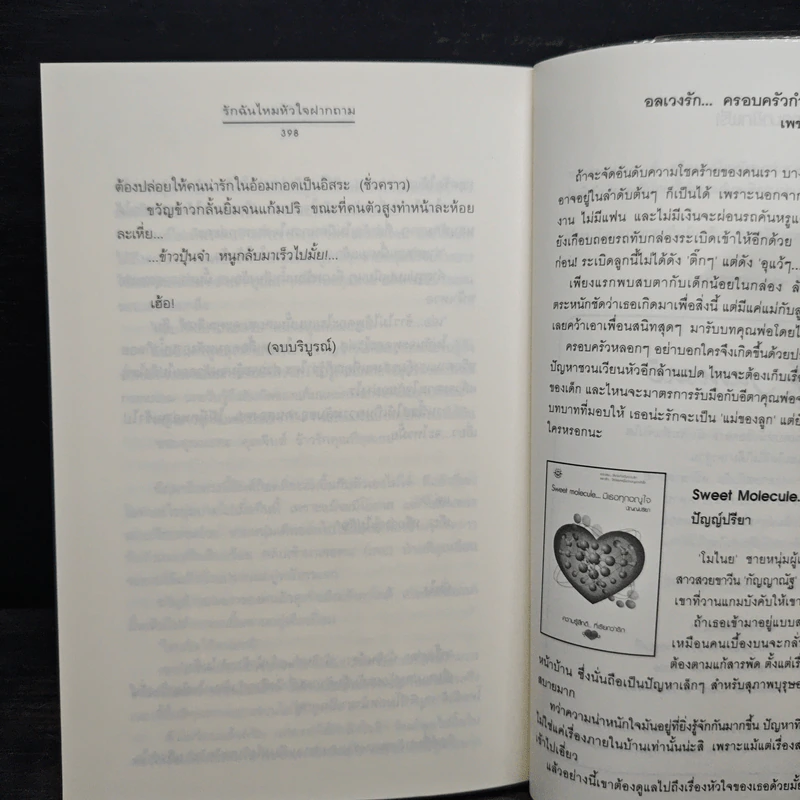 รักฉันไหมหัวใจฝากถาม
398
ต้องปล่อยให้คนน่ารักในอ้อมกอดเป็นอิสระ (ชั่วคราว)
ขวัญข้าวกลั้นยิ้มจนแก้มปริ ขณะที่คนตัวสูงทำหน้าละห้อย
ละเหี่ย...
...ข้าวปุ้นจ๋า หนูกลับมาเร็วไปมั้ย!...
เฮ้อ!
(จบบริบูรณ์)
อลเวงรัก... ครอบครัวกำ
เพร
ถ้าจะจัดอันดับความโชคร้ายของคนเรา บาง
อาจอยู่ในลำดับต้นๆ ก็เป็นได้ เพราะนอกจาก
งาน ไม่มีแฟน และไม่มีเงินจะผ่อนรถคันหรูแ
ยังเกือบถอยรถทับกล่องระเบิดเข้าให้อีกด้วย
ก่อน! ระเบิดลูกนี้ไม่ได้ดัง 'ติ๊กๆ' แต่ดัง 'อุแว้ๆ...
เพียงแรกพบสบตากับเด็กน้อยในกล่อง ลั
ตระหนักชัดว่าเธอเกิดมาเพื่อสิ่งนี้ แต่มีแค่แม่กับลู
เลยคว้าเอาเพื่อนสนิทสุดๆ มารับบทคุณพ่อโดยไ
ครอบครัวหลอกๆ อย่าบอกใครจึงเกิดขึ้นด้วยป
ปัญหาชวนเวียนหัวอีกล้านแปด ไหนจะต้องเก็บเรื่
ของเด็ก และไหนจะมาตรการรับมือกับอีตาคุณพ่อจ
บทบาทที่มอบให้ เธอน่ะรักจะเป็น 'แม่ของลูก' แต่ยั
ใครหรอกนะ
Sweet molecule... มีเธอทุกอณูใจ
ปัญญ์ปรียา
ความรู้สึกดี... ที่เรียกว่ารัก
Sweet Molecule.
ปัญญ์ปรียา
'โมไนย' ชายหนุ่มผู้เ
สาวสวยขาวีน 'กัญญาณัฐ'
เขาที่วานแกมบังคับให้เขา
ถ้าเธอเข้ามาอยู่แบบส
เหมือนคนเบื้องบนจะกลั่
ต้องตามแก้สารพัด ตั้งแต่เรื่
หน้าบ้าน ซึ่งนั่นถือเป็นปัญหาเล็กๆ สำหรับสุภาพบุรุษอ
สบายมาก
ทว่าความน่าหนักใจมันอยู่ที่ยิ่งรู้จักกันมากขึ้น ปัญหาที
ไม่ใช่แค่เรื่องภายในบ้านเท่านั้นน่ะสิ เพราะแม้แต่เรื่องส
เข้าไปเอี่ยว
แล้วอย่างนี้เขาต้องดูแลไปถึงเรื่องหัวใจของเธอด้วยมั้